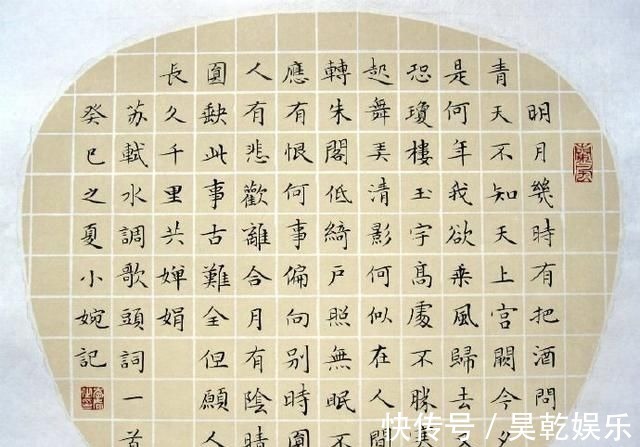 明月幾時有把酒問
青天不知天上宮闕今夕
是何年我欲乘風歸去
恐瓊樓玉宇高處不勝寒
起舞弄清影何似在人
轉朱閣低綺戶照無眠不
應有恨何事偏向別時圓
人有悲歡離合月有陰晴
圓缺此事古難全但願人
長久千里共嬋娟
苏軾水調歌頭詞一首
癸巳之夏小婉記
快传号 / 昊乾娱乐